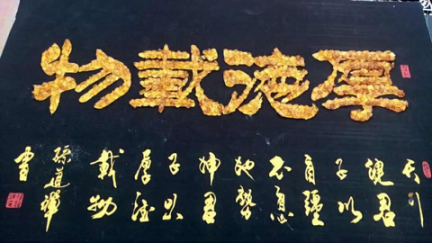 厚德載物
天行
健君
子以
自彊
不息
地勢
坤君
子以
厚德
載物
道
書